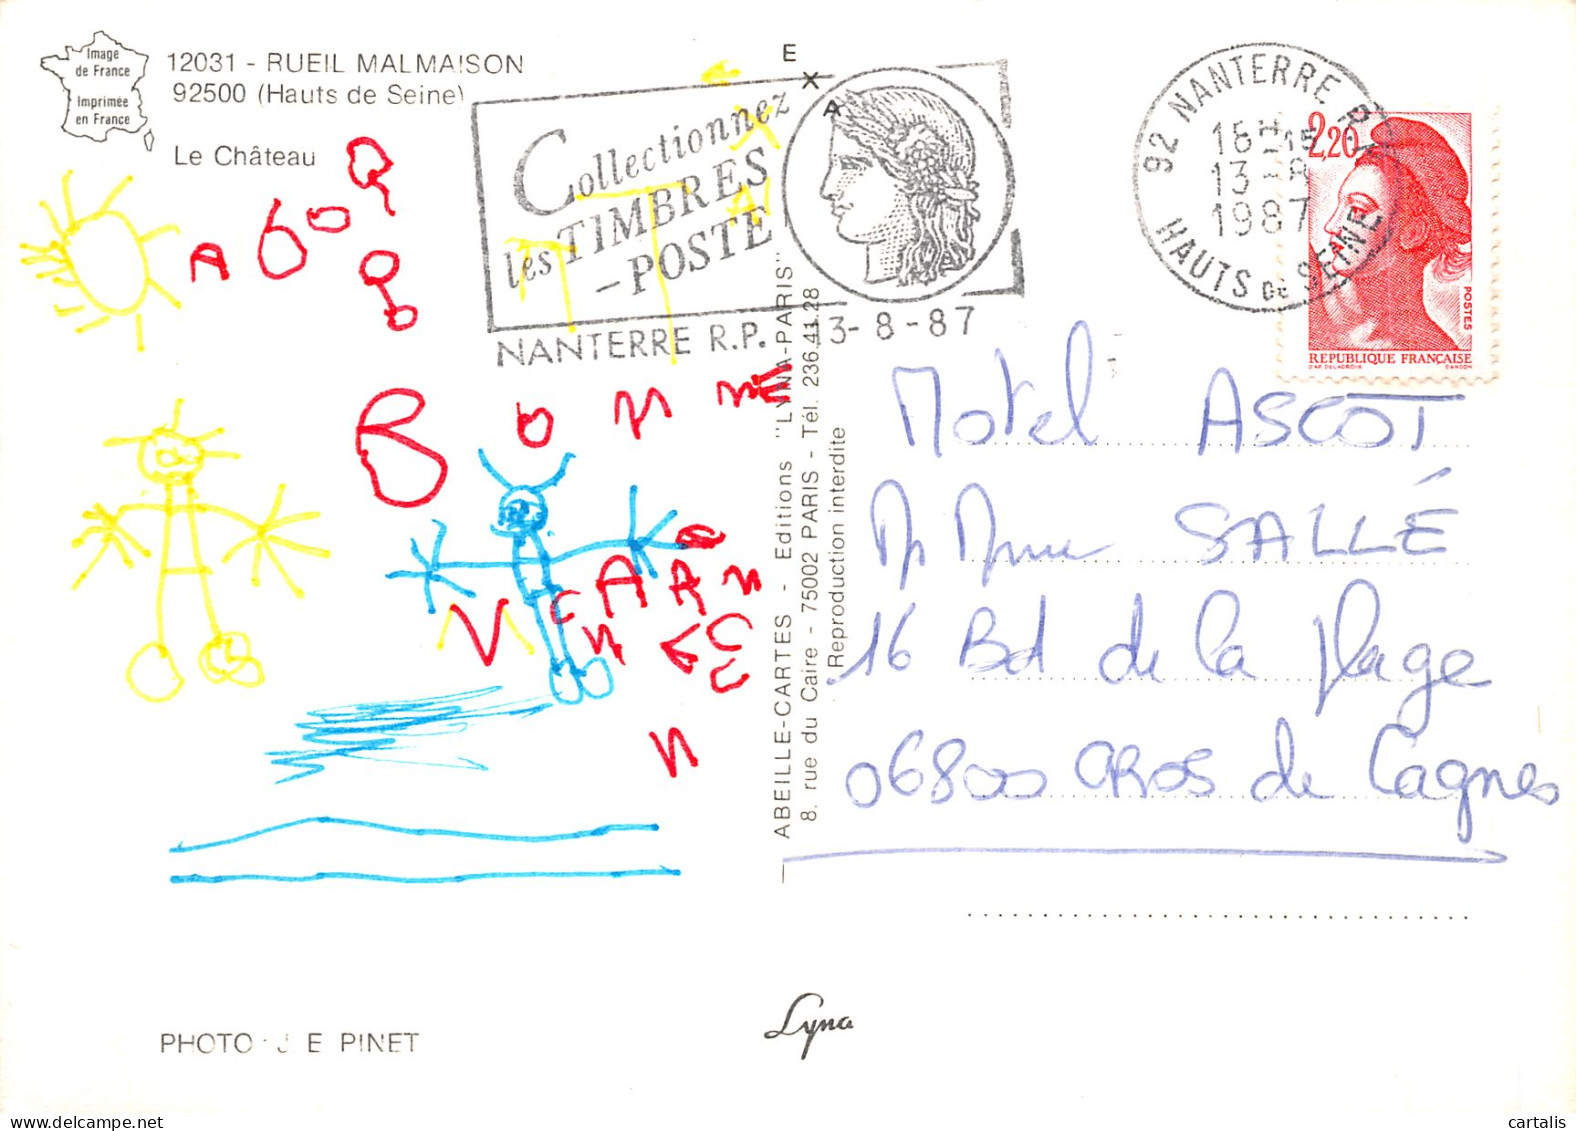 Image
de France
Imprimée
en France
12031 - RUEIL MALMAISON
92500 (Hauts de Seine)
Le Château
Collectionnez
les TIMBRES
-POSTE
NANTERRE R.P. 13-8-87
92 NANTERRE R.P.
16H15
13-8
1987
HAUTS DE SEINE
2,20
POSTES
REPUBLIQUE FRANÇAISE
D'AP. DELACROIX GANDON
BONNE
Motel ASCOT
M Mme SALLÉ
16 Bd de la plage
06800 CROS de Cagnes
ABEILLE-CARTES - Editions "LYNA-PARIS"
8, rue du Caire - 75002 PARIS - Tél. 236.41.28
Reproduction interdite
PHOTO : J E PINET
Lyna
cartalis